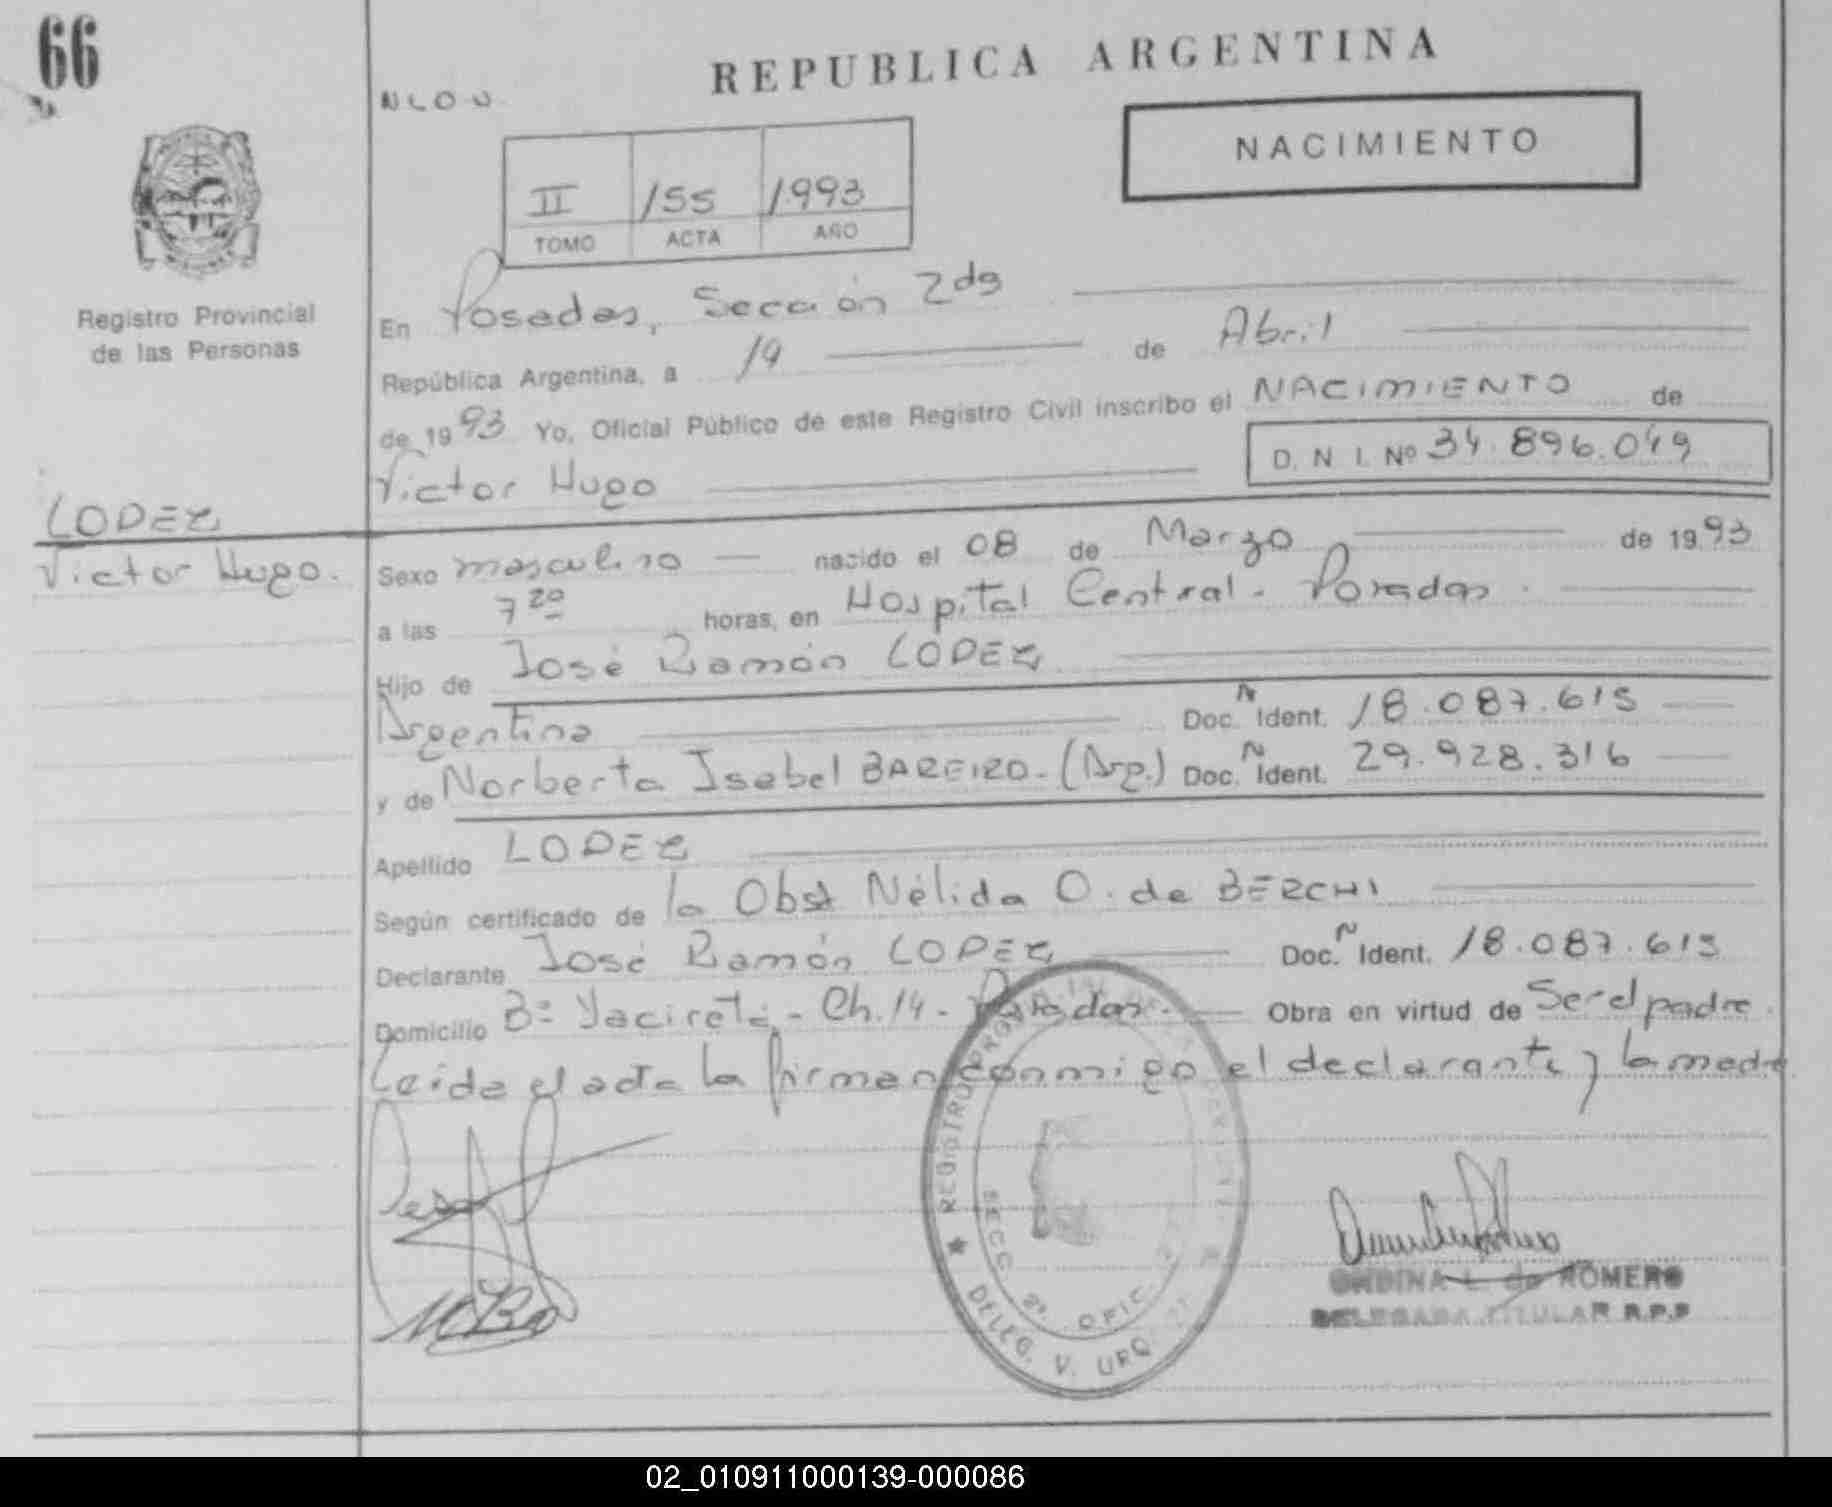 66
REPUBLICA ARGENTINA
NLOU
NACIMIENTO
II 155 1993
TOMO ACTA AÑO
Registro Provincial
de las Personas
En Posadas, Sección 2da
República Argentina, a 19 de Abril
de 1993 Yo, Oficial Público de este Registro Civil inscribo el NACIMIENTO de
Victor Hugo D. N. I. Nº 34.896.049
LOPEZ
Victor Hugo.
Sexo masculino nacido el 08 de Marzo de 1993
a las 7 20 horas, en Hospital Central - Posadas.
Hijo de José Ramón LOPEZ
Argentina Doc. N Ident. 18.087.615
y de Norberta Isabel BAREIRO - (Arg.) Doc. N Ident. 29.928.316
Apellido LOPEZ
Según certificado de la Obst Nélida O. de BERCHI
Declarante José Ramón LOPEZ Doc. N Ident. 18.087.615
Domicilio Bº Yaciretá - Ch. 14 - Posadas. Obra en virtud de Ser el padre.
Leída el acta la firman conmigo el declarante y la madre
REGISTRO PROVINCIAL DE LAS PERSONAS
SECC. 2ª. OFIC.
DELEG. V. URQ
ONDINA L. de ROMERO
DELEGADA TITULAR R.P.P
02_010911000139-000086